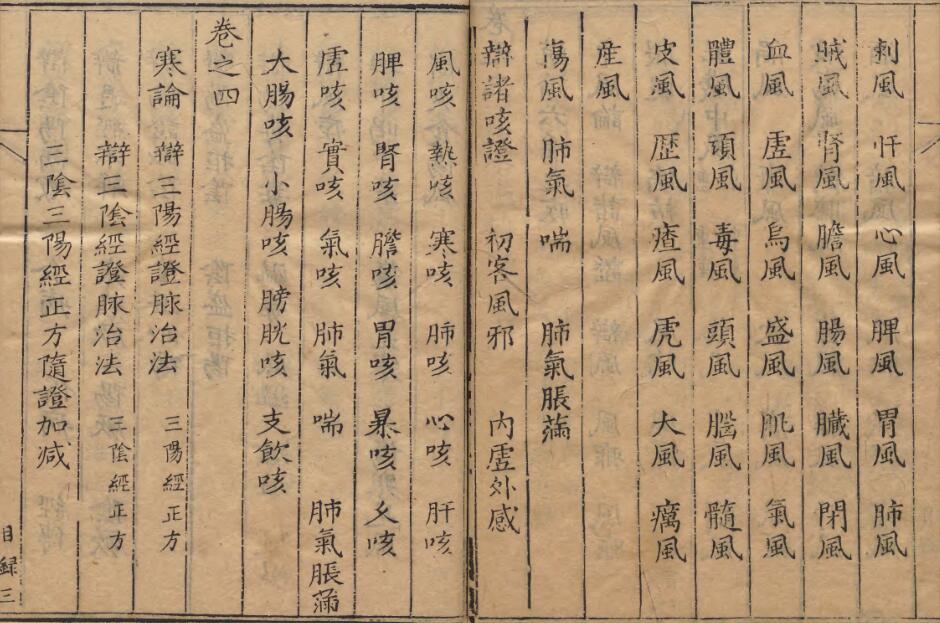 刺風 忓風 心風 脾風 胃風 肺風
賊風 腎風 膽風 腸風 臓風 閉風
血風 虗風 烏風 盛風 肌風 氣風
體風 頊風 毒風 頭風 腦風 髓風
皮風 歷風 瘡風 虎風 大風 癘風
産風
傷風 肺氣喘 肺氣脹滿
辯諸咳證 初客風邪 內虗外感
風咳 熱咳 寒咳 肺咳 心咳 肝咳
脾咳 腎咳 膽咳 胃咳 暴咳 久咳
虗咳 實咳 氣咳 肺氣喘 肺氣脹滿
大腸咳 小腸咳 膀胱咳 支飲咳
卷之四
寒論 辯三陽經證脉治法 三陽經正方
辯三陰經證脉治法 三陰經正方
三陰三陽經正方隨證加减
目録 三